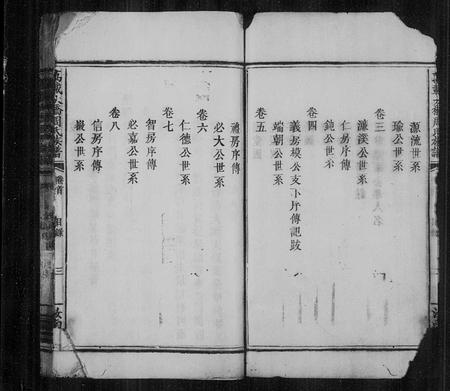 源流世系
瑜公世系
卷三
濂溪公世系
仁房序傳
鈍公世系
卷四
義房模公支小圩傳記跋
端朝公世系
卷五
禮房序傳
必大公世系
卷六
仁德公世系
卷七
智房序傳
必嘉公世系
卷八
信房序傳
嚴公世系
卷首
目錄
三